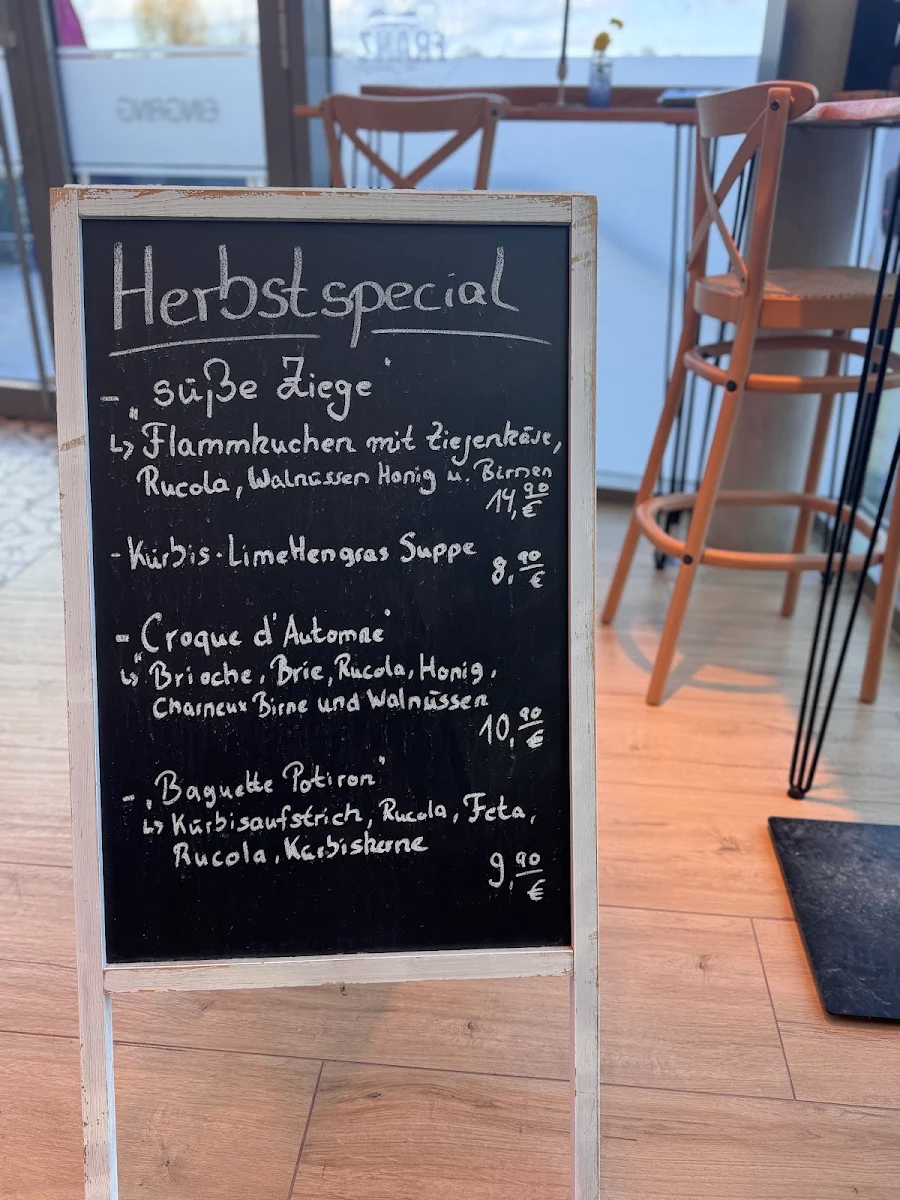 FRANZ
EINGANG
Herbstspecial
- „süße Ziege"
↳ Flammkuchen mit Ziegenkäse,
Rucola, Walnüssen Honig u. Birnen
14,90 €
- Kürbis-Limettengras Suppe
8,90 €
- „Croque d'Automne"
↳ Brioche, Brie, Rucola, Honig,
Charneux Birne und Walnüssen
10,90 €
- „Baguette Potiron"
↳ Kürbisaufstrich, Rucola, Feta,
Rucola, Kürbiskerne
9,90 €